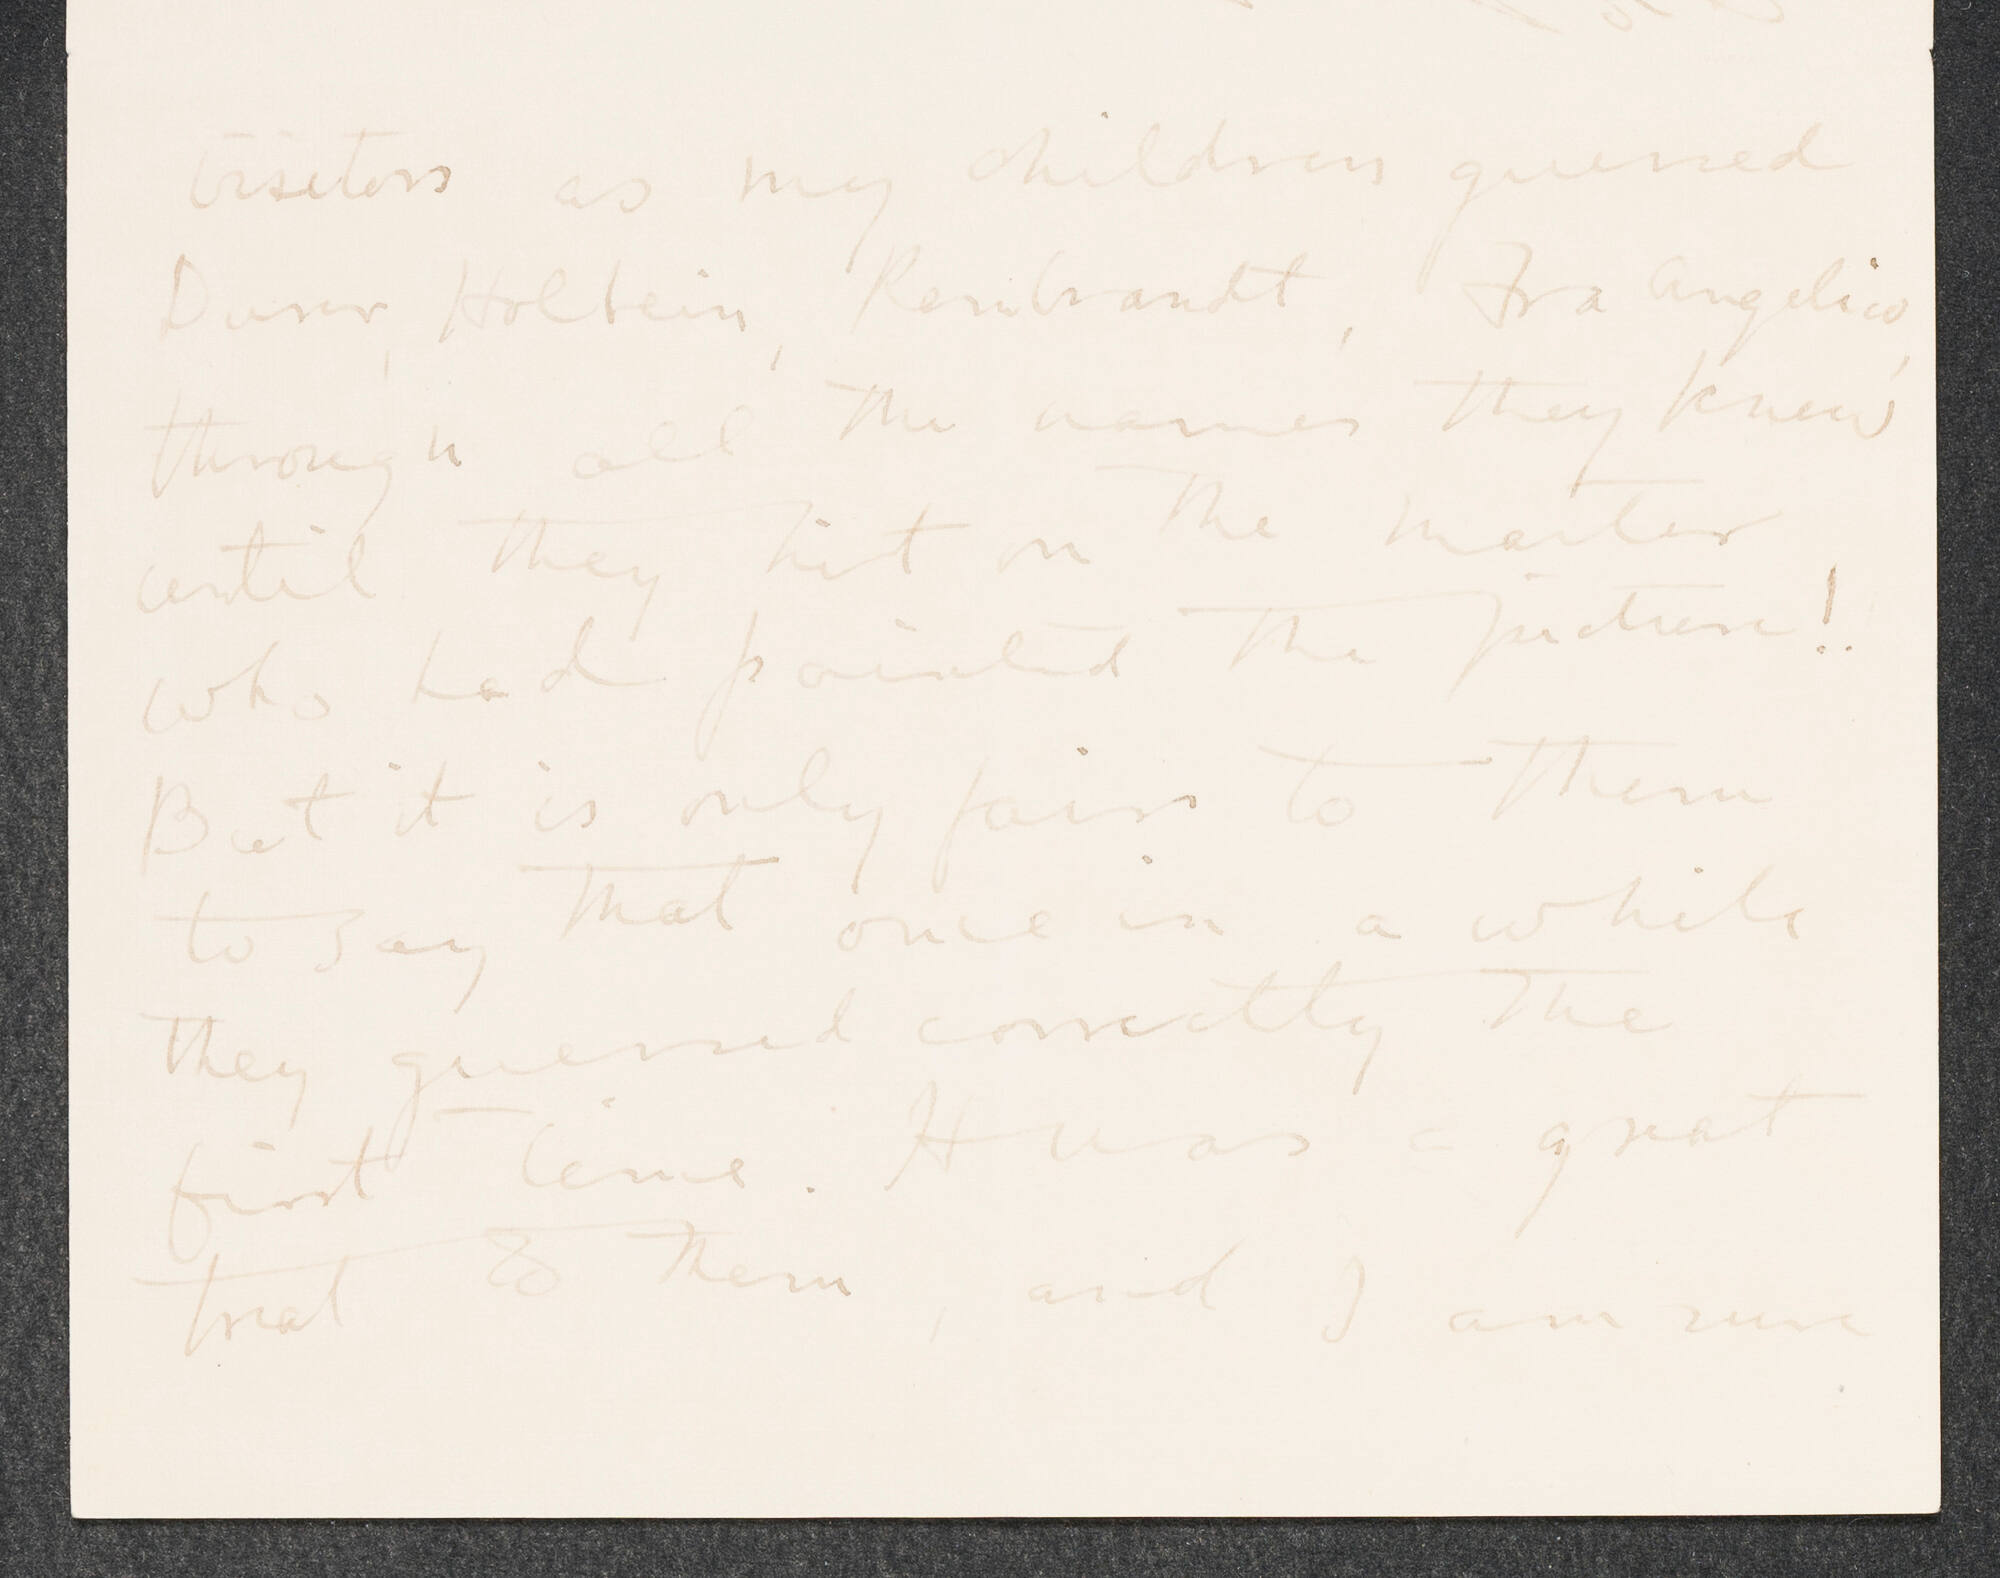 visitors as my children guessed
Durer, Holbein, Rembrandt, Fra Angelico,
through all the names they knew
until they hit on the master
who had painted the picture!
But it is only fair to them
to say that once in a while
they guessed correctly the
first time. It was a great
treat to them, and I am sure